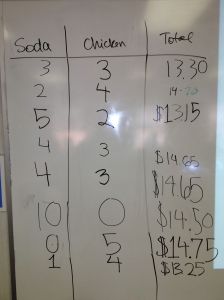 Soda Chicken Total
3 3 13.30
2 4 14.20
5 2 $13.15
4 3 $14.65
4 3 $14.65
10 0 $14.50
0 5 $14.75
1 4 $13.25